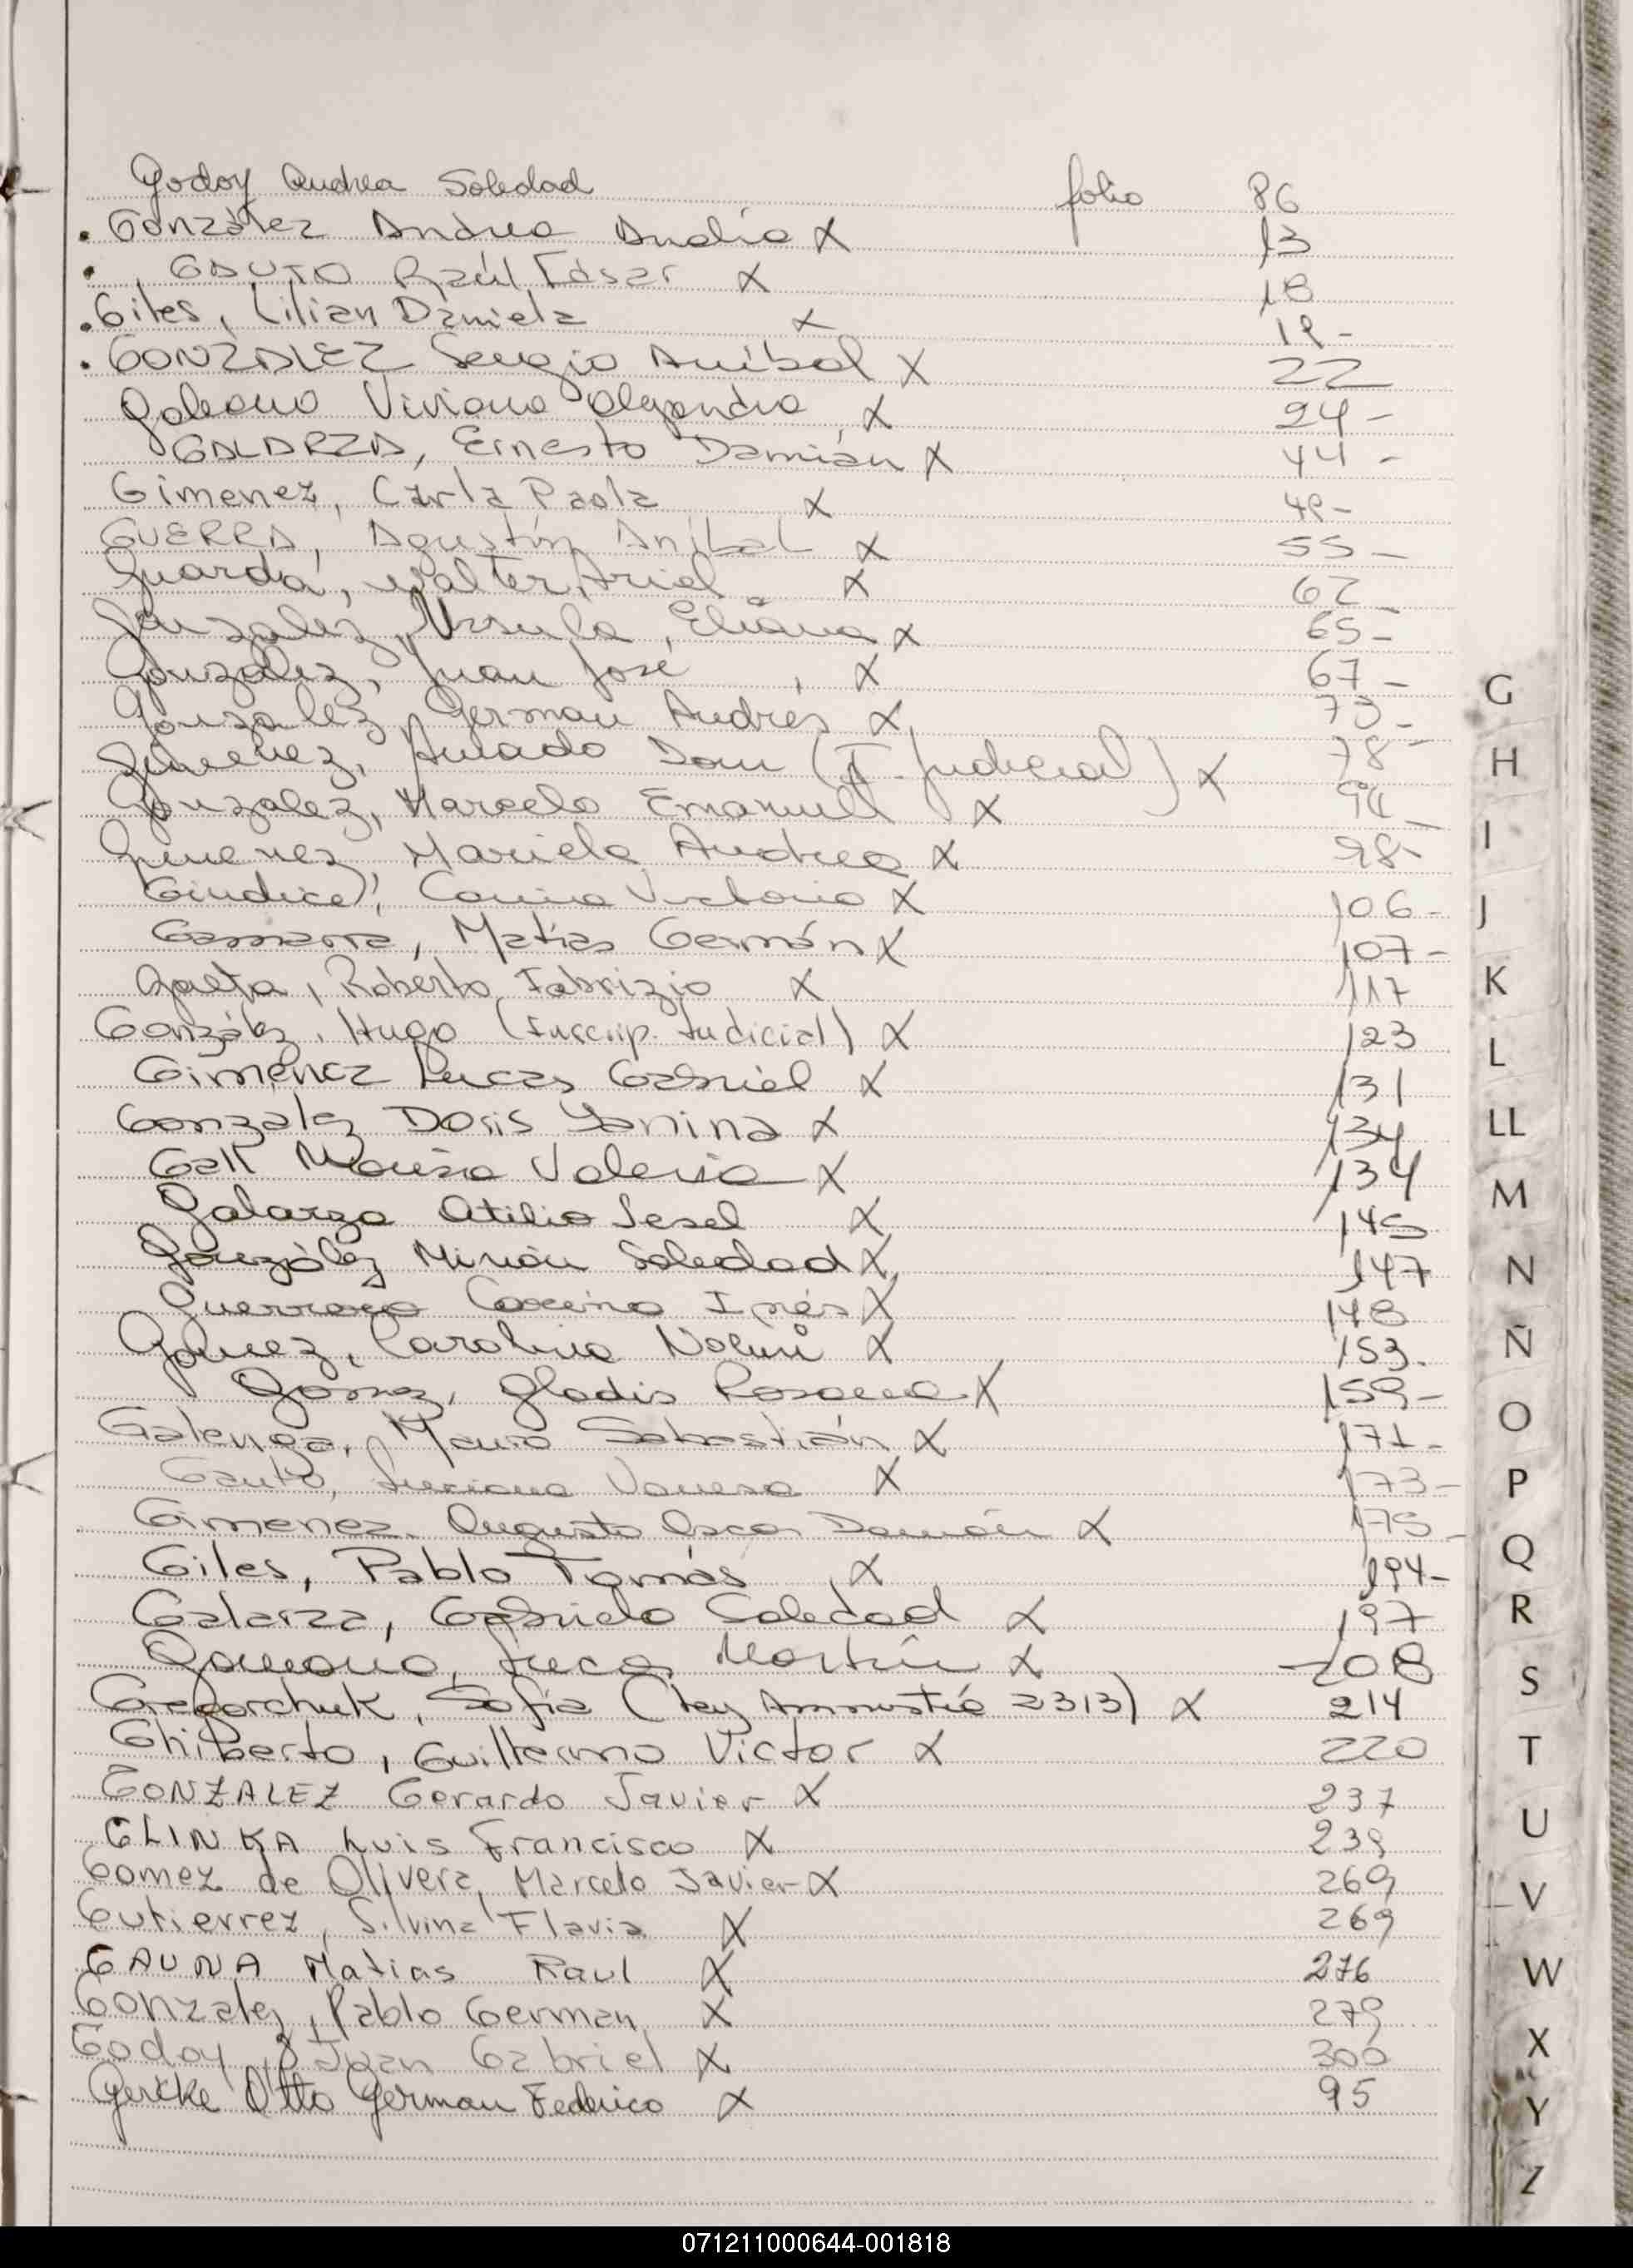 Godoy Andrea Soledad folio 86
. González Andrea Analía X 13
. GAUTO Raúl César X 18
. Giles, Lilian Daniela X 19-
. GONZALEZ Sergio Anibal X 22
Galeano Viviana Alejandra X 24-
GALARZA, Ernesto Damián X 44-
Gimenez, Carla Paola X 49-
GUERRA, Agustín Aníbal X 55-
Guarda, Walter Ariel X 62
Gonzalez, Ursula, Eliana X 65-
González, Juan José X 67-
Gonzalez, German Andrés X 73-
Gimenez, Amado (I. Judicial) X 78-
Gonzalez, Marcelo Emanuel X 94-
Gimenez, Mariela Andrea X 98-
Giudice, Victoria X 106-
Gamarra, Matías Germán X 107-
Roberto Fabrizio X 117
González, Hugo (Inscrip. Judicial) X 123
Gimenez Lucas Gabriel X 131
Gonzalez Doris Yanina X 134
Gall María Valeria X 134
Galarza Atilio X 145
González Soledad X 147
Inés X 148
Gómez, Carolina Noemí X 153.
Gomez, Gladis Rosana X 159-
Mauro Sebastián X 171-
Gauto, Luciana Vanesa X 173-
Gimenez Augusto Oscar Damián X 175-
Giles, Pablo Tomás X 194-
Galarza, Gabriela Soledad X 197
Lucas Martín X 208
Gregorchuk, Sofía (Ley Amnistía 2313) X 214
Ghiberto, Guillermo Victor X 220
GONZALEZ Gerardo Javier X 237
GLINKA Luis Francisco X 239
Gomez de Olivera, Marcelo Javier X 269
Gutierrez, Silvina Flavia X 269
GAUNA Matias Raul X 276
Gonzalez, Pablo German X 279
Godoy, Juan Gabriel X 300
Gercke Otto German Federico X 95
G
H
I
J
K
L
LL
M
N
Ñ
O
P
Q
R
S
T
U
V
W
X
Y
Z
071211000644-001818